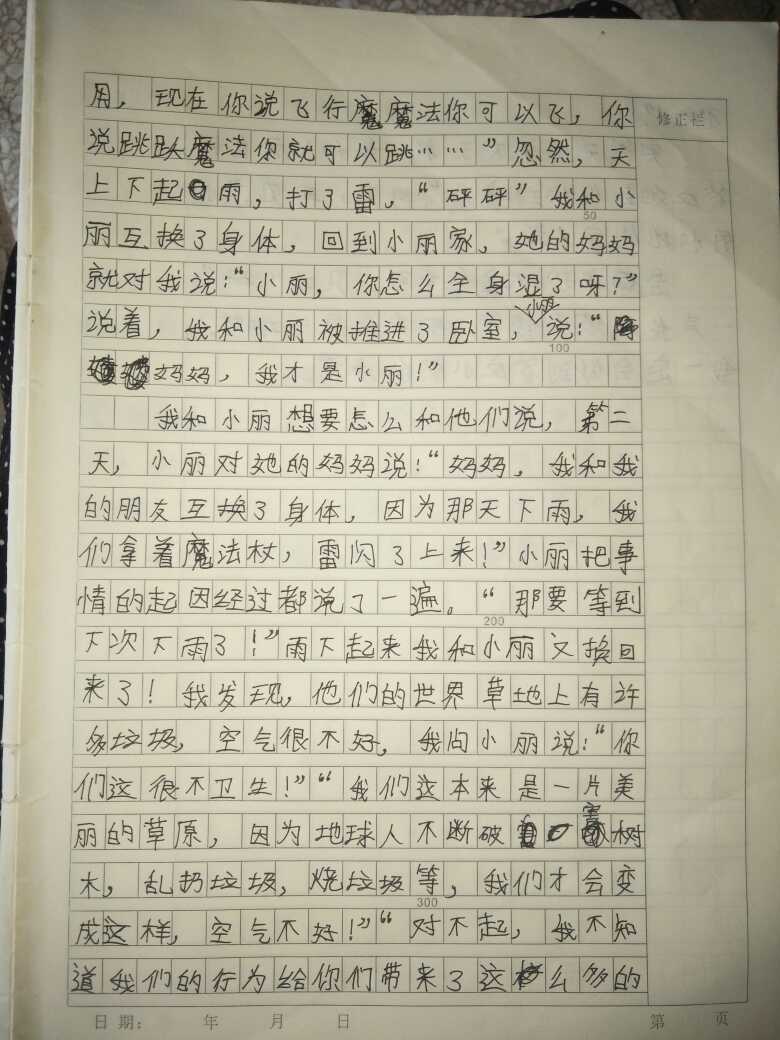 修正栏
用，现在你说飞行魔魔法你可以飞，你
说跳跃魔法你就可以跳……”忽然，天
上下起雨，打了雷，“砰砰”我和小
50
丽互换了身体，回到小丽家，她的妈妈
就对我说：“小丽，你怎么全身湿了呀？”
小丽
说着，我和小丽被推进了卧室，说：“
100
妈妈，我才是小丽！”
我和小丽想要怎么和他们说，第二
天，小丽对她的妈妈说：“妈妈，我和我
的朋友互换了身体，因为那天下雨，我
们拿着魔法杖，雷闪了上来！”小丽把事
情的起因经过都说了一遍。“那要等到
200
下次下雨了！”雨下起来我和小丽又换回
来了！我发现，他们的世界草地上有许
多垃圾，空气很不好，我问小丽说：“你
们这很不卫生！”“我们这本来是一片美
丽的草原，因为地球人不断破害树
木，乱扔垃圾，烧垃圾等，我们才会变
300
成这样，空气不好！”“对不起，我不知
道我们的行为给你们带来了这么多的
日期： 年 月 日 第 页